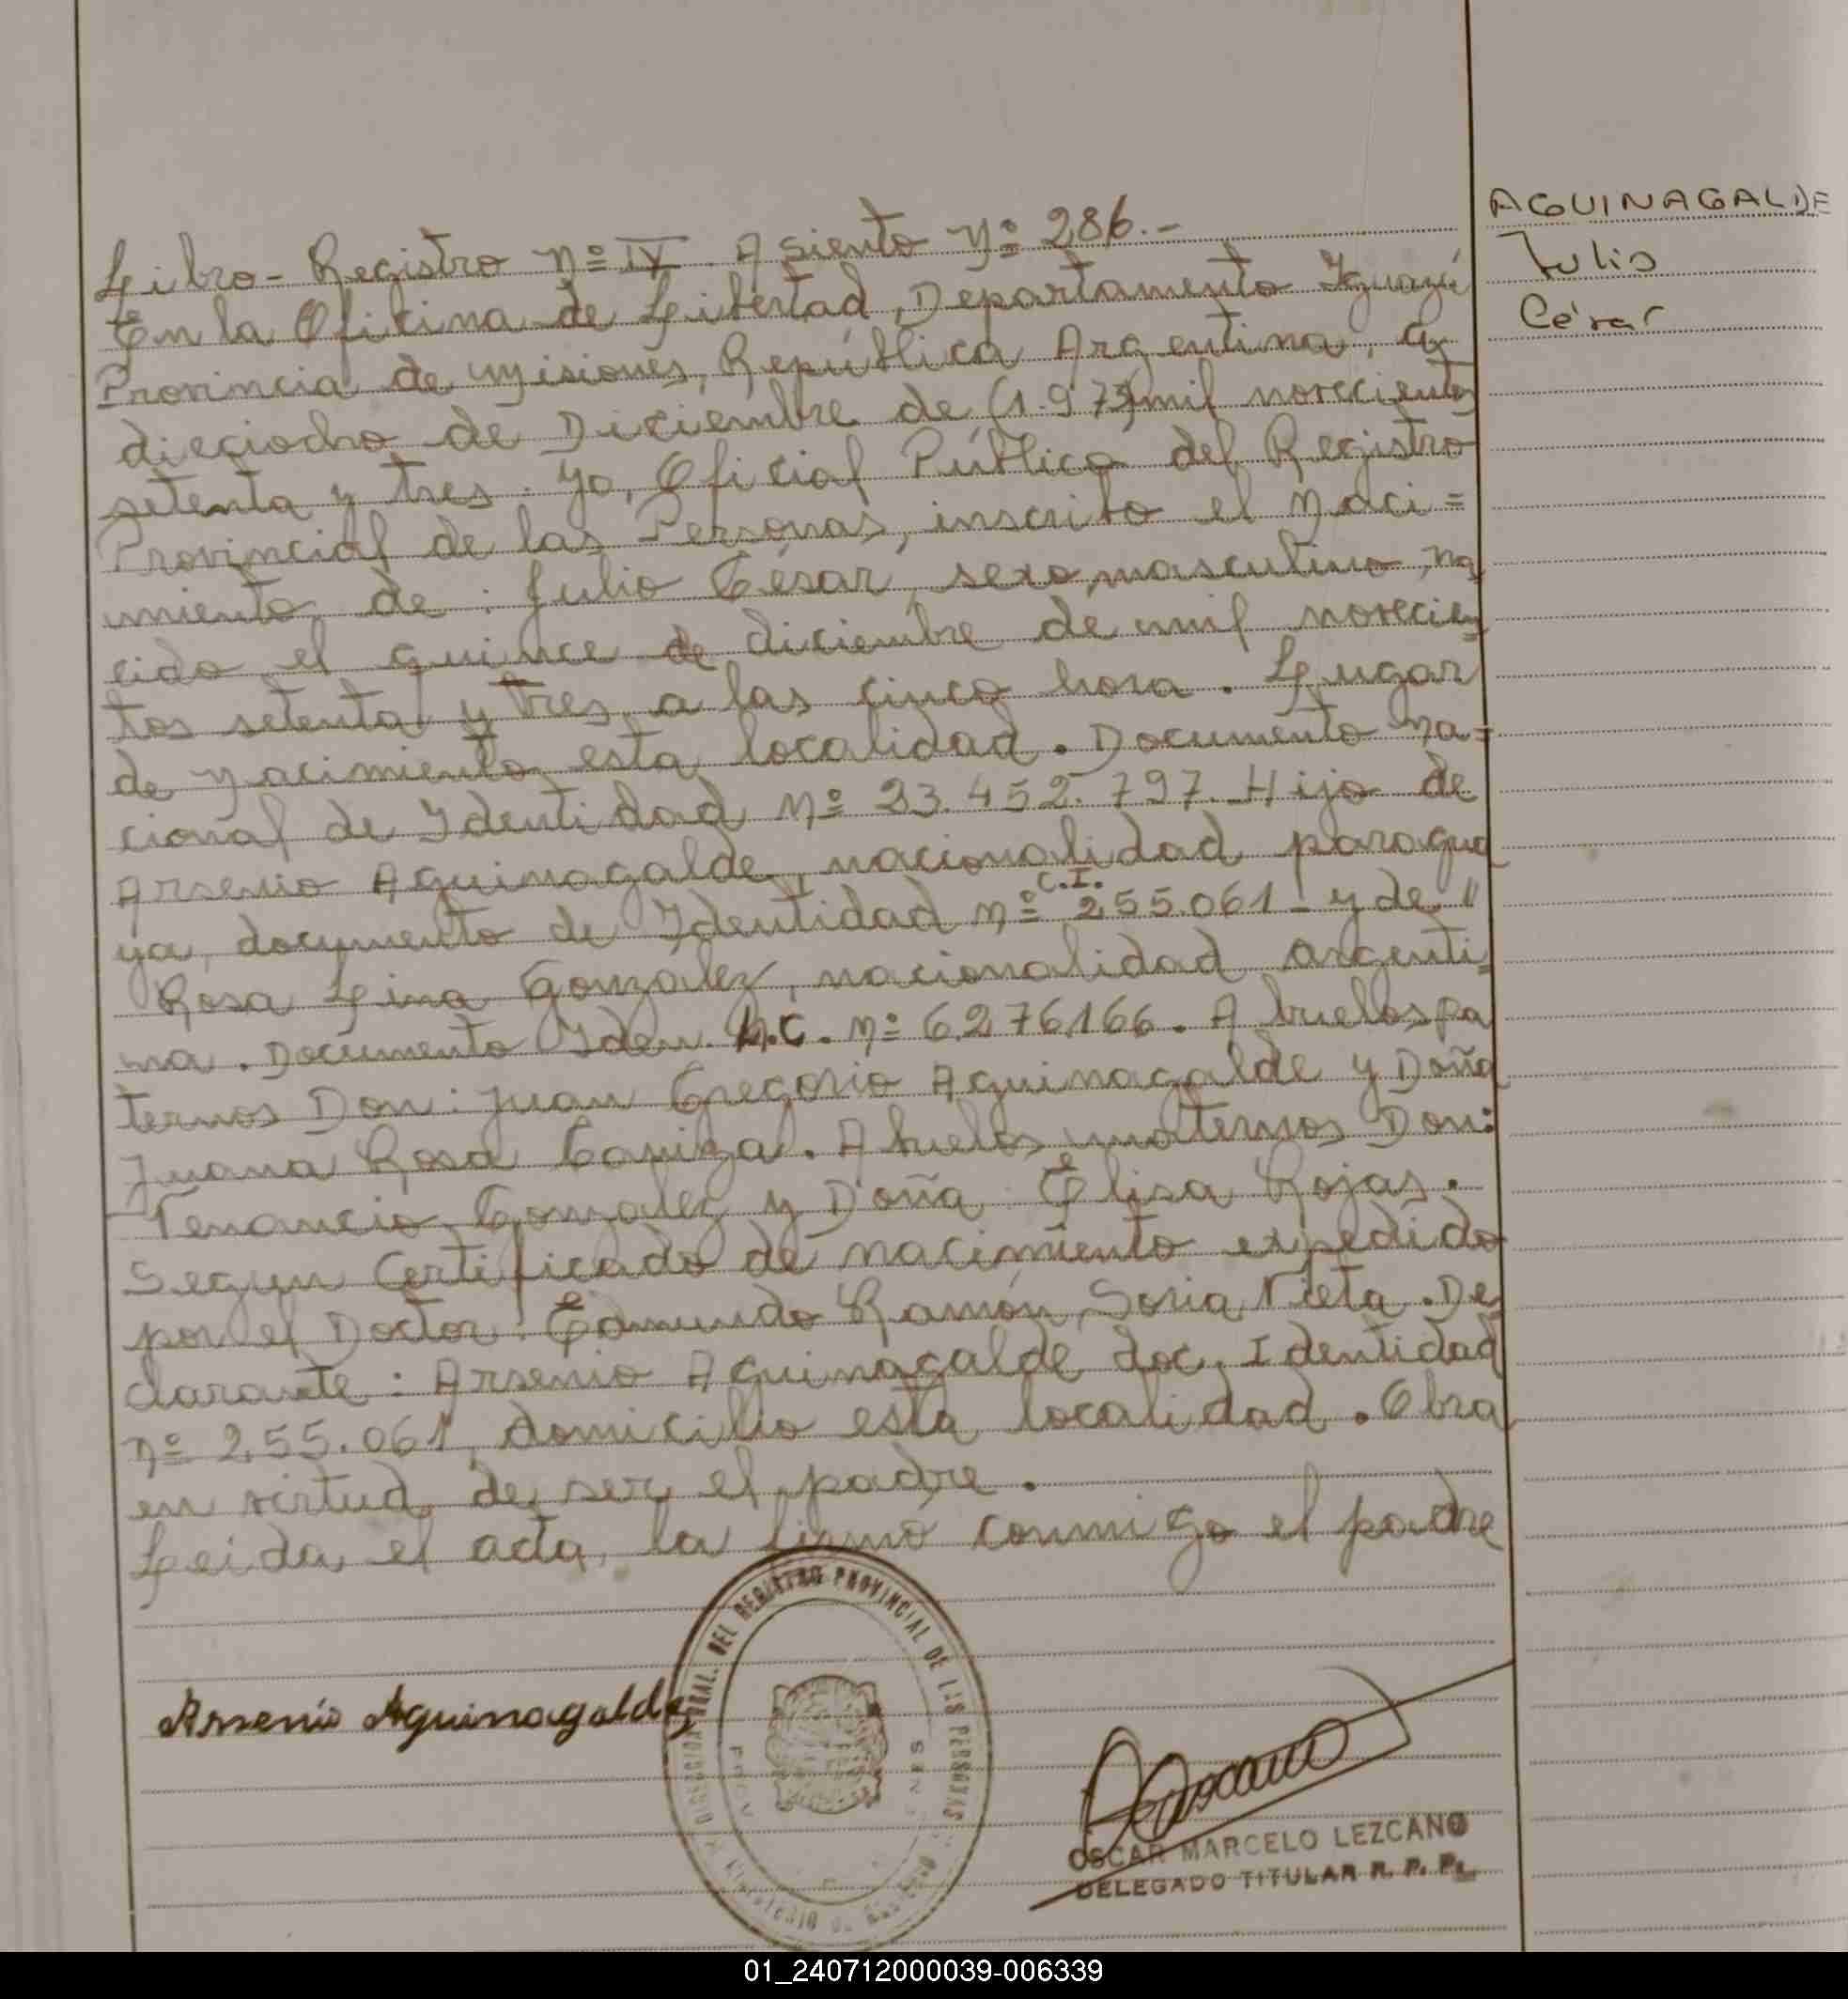 AGUINAGALDE
Julio
César
Libro - Registro Nº IV. Asiento Nº 286.-
En la Oficina de Libertad, Departamento Iguazú
Provincia de Misiones, República Argentina, a
dieciocho de Diciembre de (1.973) mil novecientos
setenta y tres. Yo, Oficial Público del Registro
Provincial de las Personas, inscribo el Naci=
miento de: Julio César, sexo masculino, na
cido el quince de diciembre de mil novecien
tos setenta y tres, a las cinco hora. Lugar
de Nacimiento esta localidad. Documento Na=
cional de Identidad Nº 23.452.797. Hijo de
Arsenio Aguinagalde, nacionalidad paragua
C.I.
ya, documento de Identidad Nº 255.061 - y de "
Rosa Lina González, nacionalidad argenti=
na. Documento Iden. L.C. Nº 6.276.166. Abuelos pa
ternos Don: Juan Gregorio Aguinagalde y Doña
Juana Rosa Caniza. Abuelos maternos Don:
Venancio González y Doña Elisa Rojas.
Segun Certificado de nacimiento expedido
por el Doctor: Edmundo Ramón Soria Vieta. De
clarante: Arsenio Aguinagalde doc. Identidad
Nº 255.061, domicilio esta localidad. Obra
en virtud de ser el padre.
Leida el acta, la firmó conmigo el padre
DEL REGISTRO PROVINCIAL DE LAS PERSONAS
Arsenio Aguinagalde
OSCAR MARCELO LEZCANO
DELEGADO TITULAR R. P. P.
01_240712000039-006339